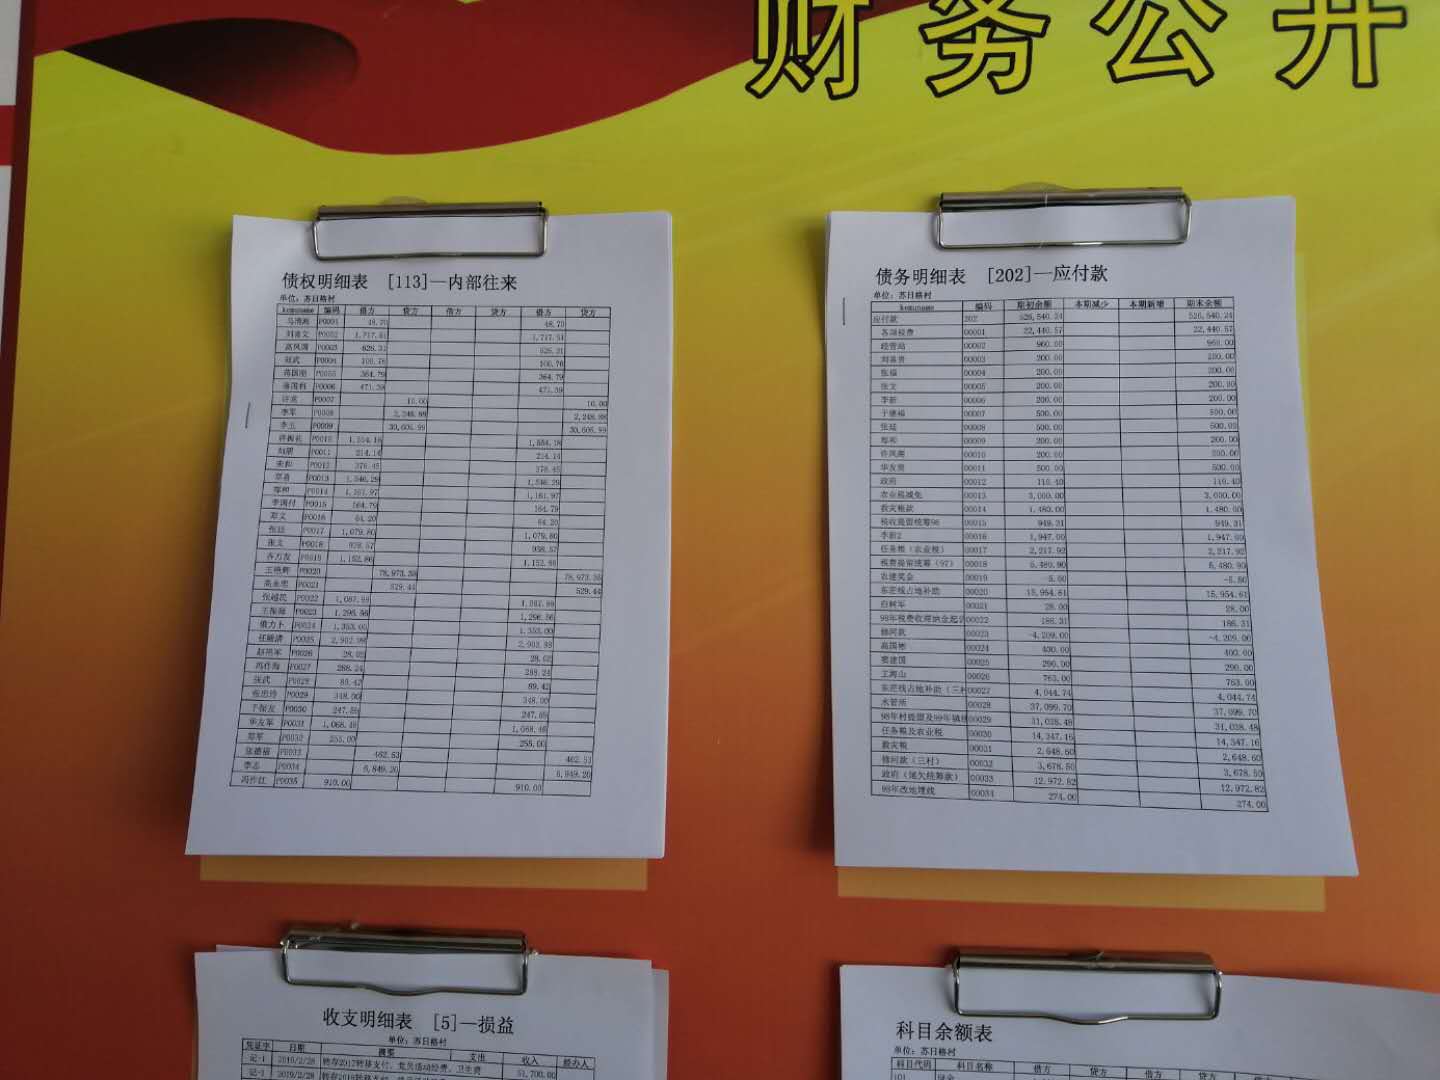 财务公开
债权明细表 [113]—内部往来
单位：苏日格村
kemuname 编码 借方 贷方 借方 贷方 借方 贷方
P0001 48.70 48.70
刘喜文 P0002 1,717.51 1,717.51
高凤国 P0003 626.31 626.31
P0004 100.76 100.76
P0005 364.79 364.79
P0006 471.39 471.39
许宽 P0007 10.00 10.00
李军 P0008 2,248.88 2,248.88
李五 P0009 30,606.99 30,606.99
P0010 1,554.18 1,554.18
P0011 214.14 214.14
P0012 378.45 378.45
P0013 1,546.29 1,546.29
郑和 P0014 1,161.97 1,161.97
李国付 P0015 164.79 164.79
郑文 P0016 64.20 64.20
张廷 P0017 1,079.80 1,079.80
张文 P0018 938.57 938.57
齐万发 P0019 1,152.86 1,152.86
王艳辉 P0020 78,973.38 78,973.38
高永忠 P0021 529.44 529.44
张越民 P0022 1,087.99 1,087.99
王振海 P0023 1,296.56 1,296.56
俄力卜 P0024 1,353.00 1,353.00
任殿清 P0025 2,902.98 2,902.98
赵班军 P0026 28.02 28.02
冯作海 P0027 288.24 288.24
张武 P0028 89.42 89.42
张忠玲 P0029 348.00 348.00
于振友 P0030 247.59 247.59
华友军 P0031 1,068.48 1,068.48
郑军 P0032 255.00 255.00
张德福 P0033 462.53 462.53
李志 P0034 6,849.20 6,849.20
冯作江 P0035 910.00 910.00
债务明细表 [202]—应付款
单位：苏日格村
kemuname 编码 期初余额 本期减少 本期新增 期末余额
应付款 202 526,540.24 526,540.24
各项税费 00001 22,440.57 22,440.57
经管站 00002 960.00 960.00
刘喜贵 00003 200.00 200.00
张福 00004 200.00 200.00
张文 00005 200.00 200.00
李新 00006 200.00 200.00
于德福 00007 500.00 500.00
张廷 00008 500.00 500.00
郑和 00009 200.00 200.00
许凤阁 00010 200.00 200.00
华友贵 00011 500.00 500.00
政府 00012 110.40 110.40
农业税减免 00013 3,000.00 3,000.00
救灾帐款 00014 1,480.00 1,480.00
税收提留统筹96 00015 949.31 949.31
李新2 00016 1,947.00 1,947.00
任务粮（农业税） 00017 2,217.92 2,217.92
税费提留统筹（97） 00018 5,480.90 5,480.90
农建奖金 00019 -5.80 -5.80
东茫线占地补助 00020 15,954.61 15,954.61
白树军 00021 28.00 28.00
98年税费收滞纳金起 00022 186.31 186.31
修河款 00023 -4,209.00 -4,209.00
高国彬 00024 400.00 400.00
窦建国 00025 290.00 290.00
王海山 00026 763.00 763.00
东茫线占地补助（三村 00027 4,044.74 4,044.74
水管所 00028 37,099.70 37,099.70
98年村提留及99年镇统 00029 31,038.48 31,038.48
任务粮及农业税 00030 14,347.16 14,347.16
救灾粮 00031 2,648.60 2,648.60
修河款（三村） 00032 3,678.50 3,678.50
政府（尾欠统筹款） 00033 12,972.82 12,972.82
99年改地埋线 00034 274.00 274.00
收支明细表 [5]—损益
单位：苏日格村
凭证字 日期 摘要 支出 收入 经办人
记-1 2019/2/28 转存2017转移支付，党员活动经费，卫生费 51,700.00
记-1 2019/2/28
科目余额表
单位：苏日格村
科目代码 科目名称 借方 贷方 借方 贷方 借方 贷方
101 现金